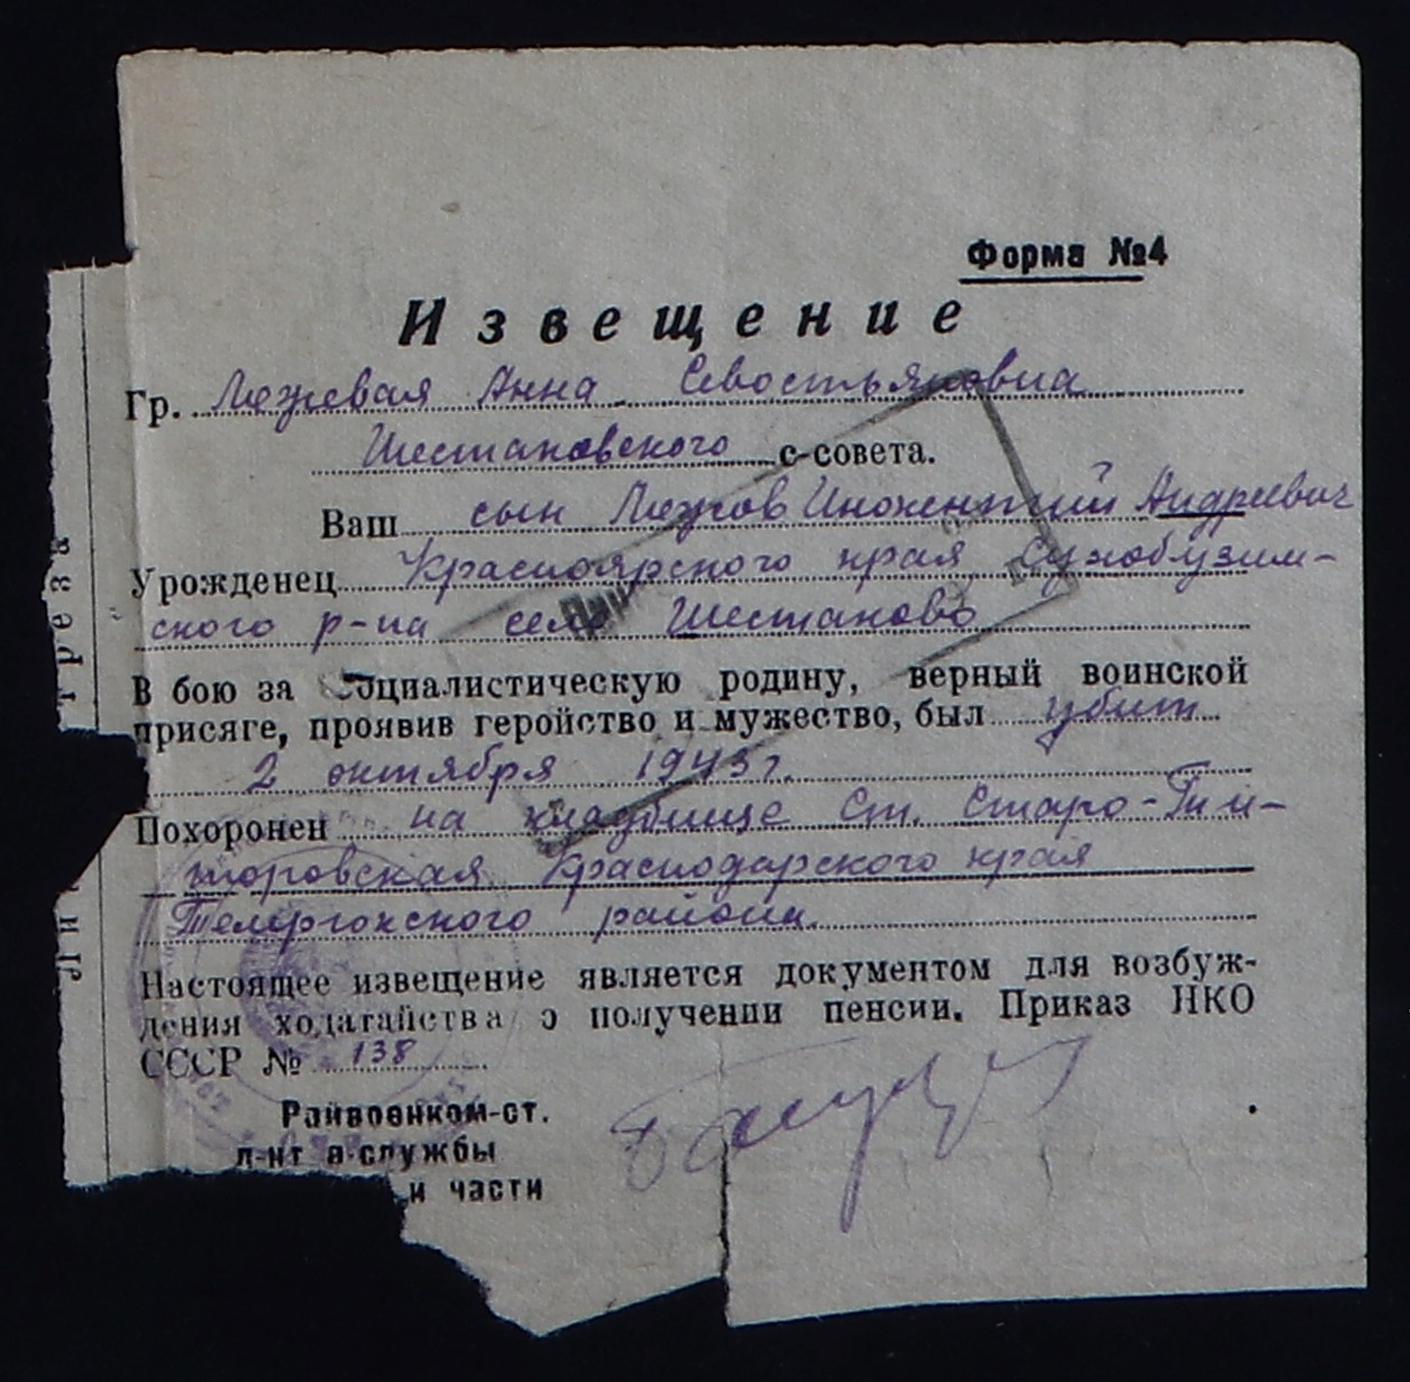 Форма №4
Извещение
Гр. Анна Севостьяновна
Шестаковского с-совета.
Ваш сын Инокентий Андреевич
Урожденец Красноярского края Сухобузим-
ского р-на село Шестаково
В бою за социалистическую родину, верный воинской
присяге, проявив геройство и мужество, был убит
2 октября 1943 г.
Похоронен на кладбище Ст. Старо-Ти и-
торовская Краснодарского края
Темргокского района.
Настоящее извещение является документом для возбуж-
дения ходатайства о получении пенсии. Приказ НКО
СССР № 138
Райвоенком-ст.
л-нт а-службы
и части